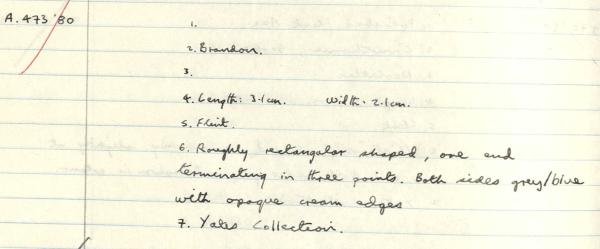 A.473 '80
1.
2. Brandon.
3.
4. Length: 3.1cm. Width: 2.1cm.
5. Flint.
6. Roughly rectangular shaped, one end
terminating in three points. Both sides grey/blue
with opaque cream edges
7. Yates Collection.